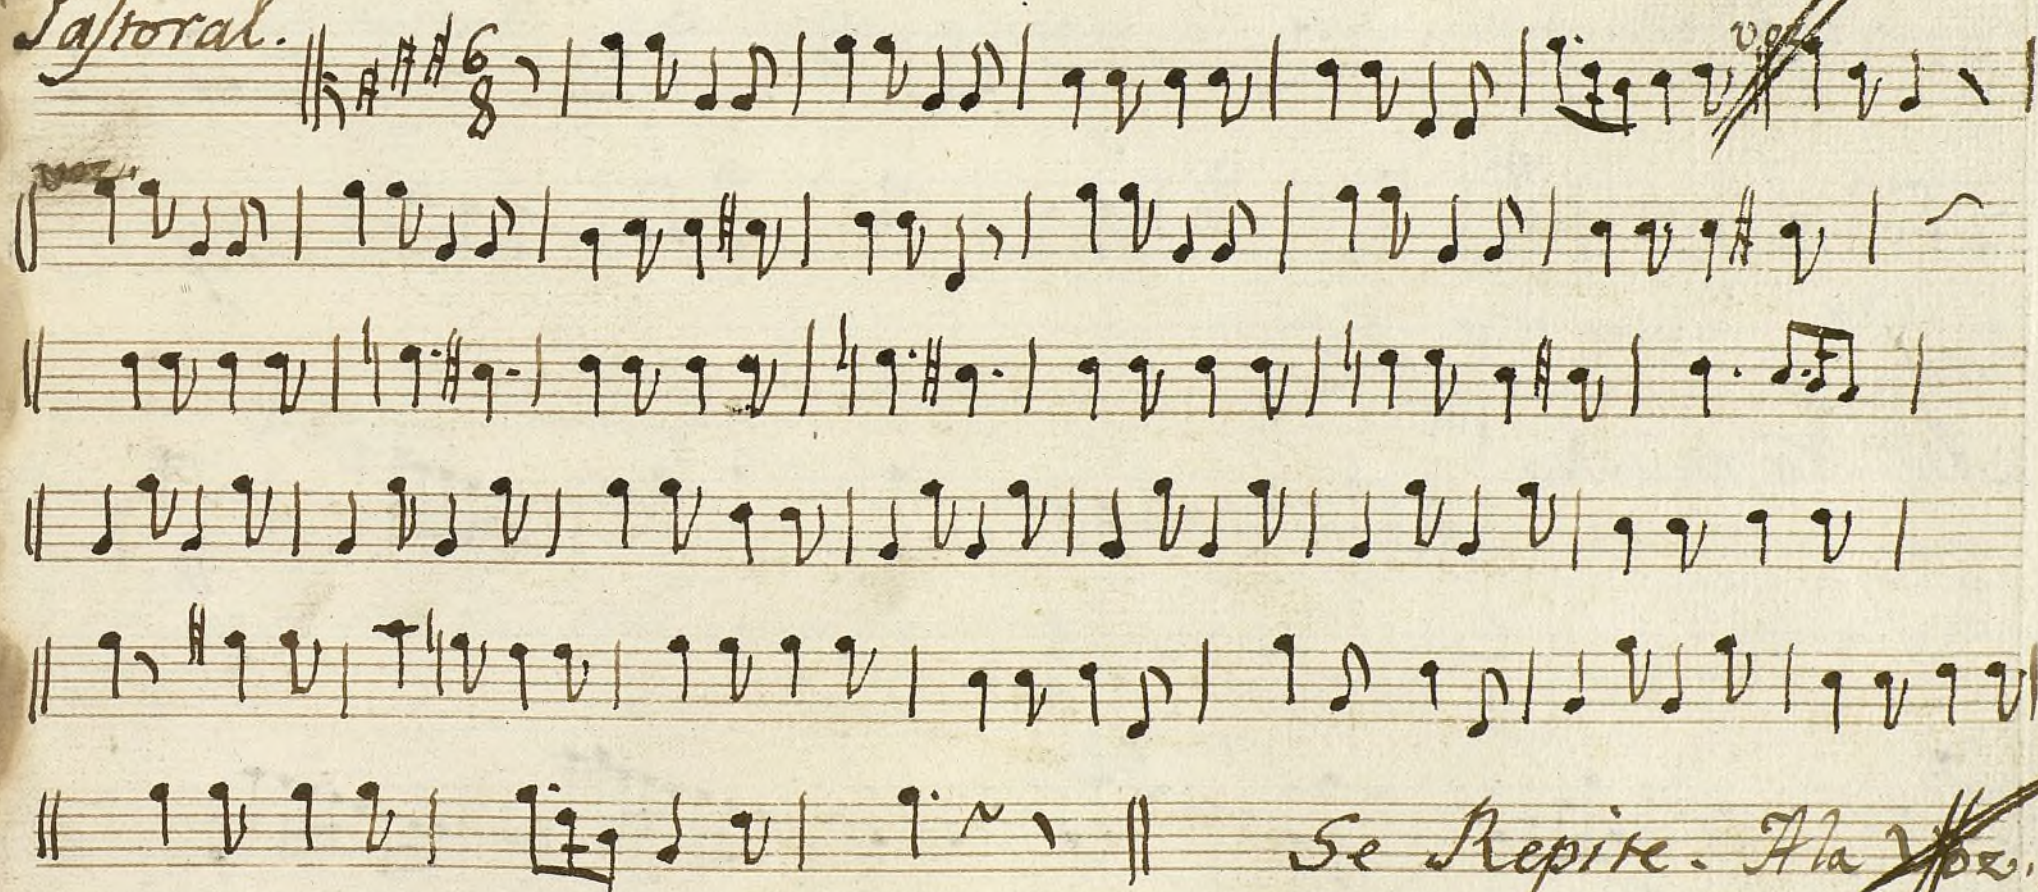 Pastoral.
6
8
voz.
voz.
Se Repite. A la Voz.